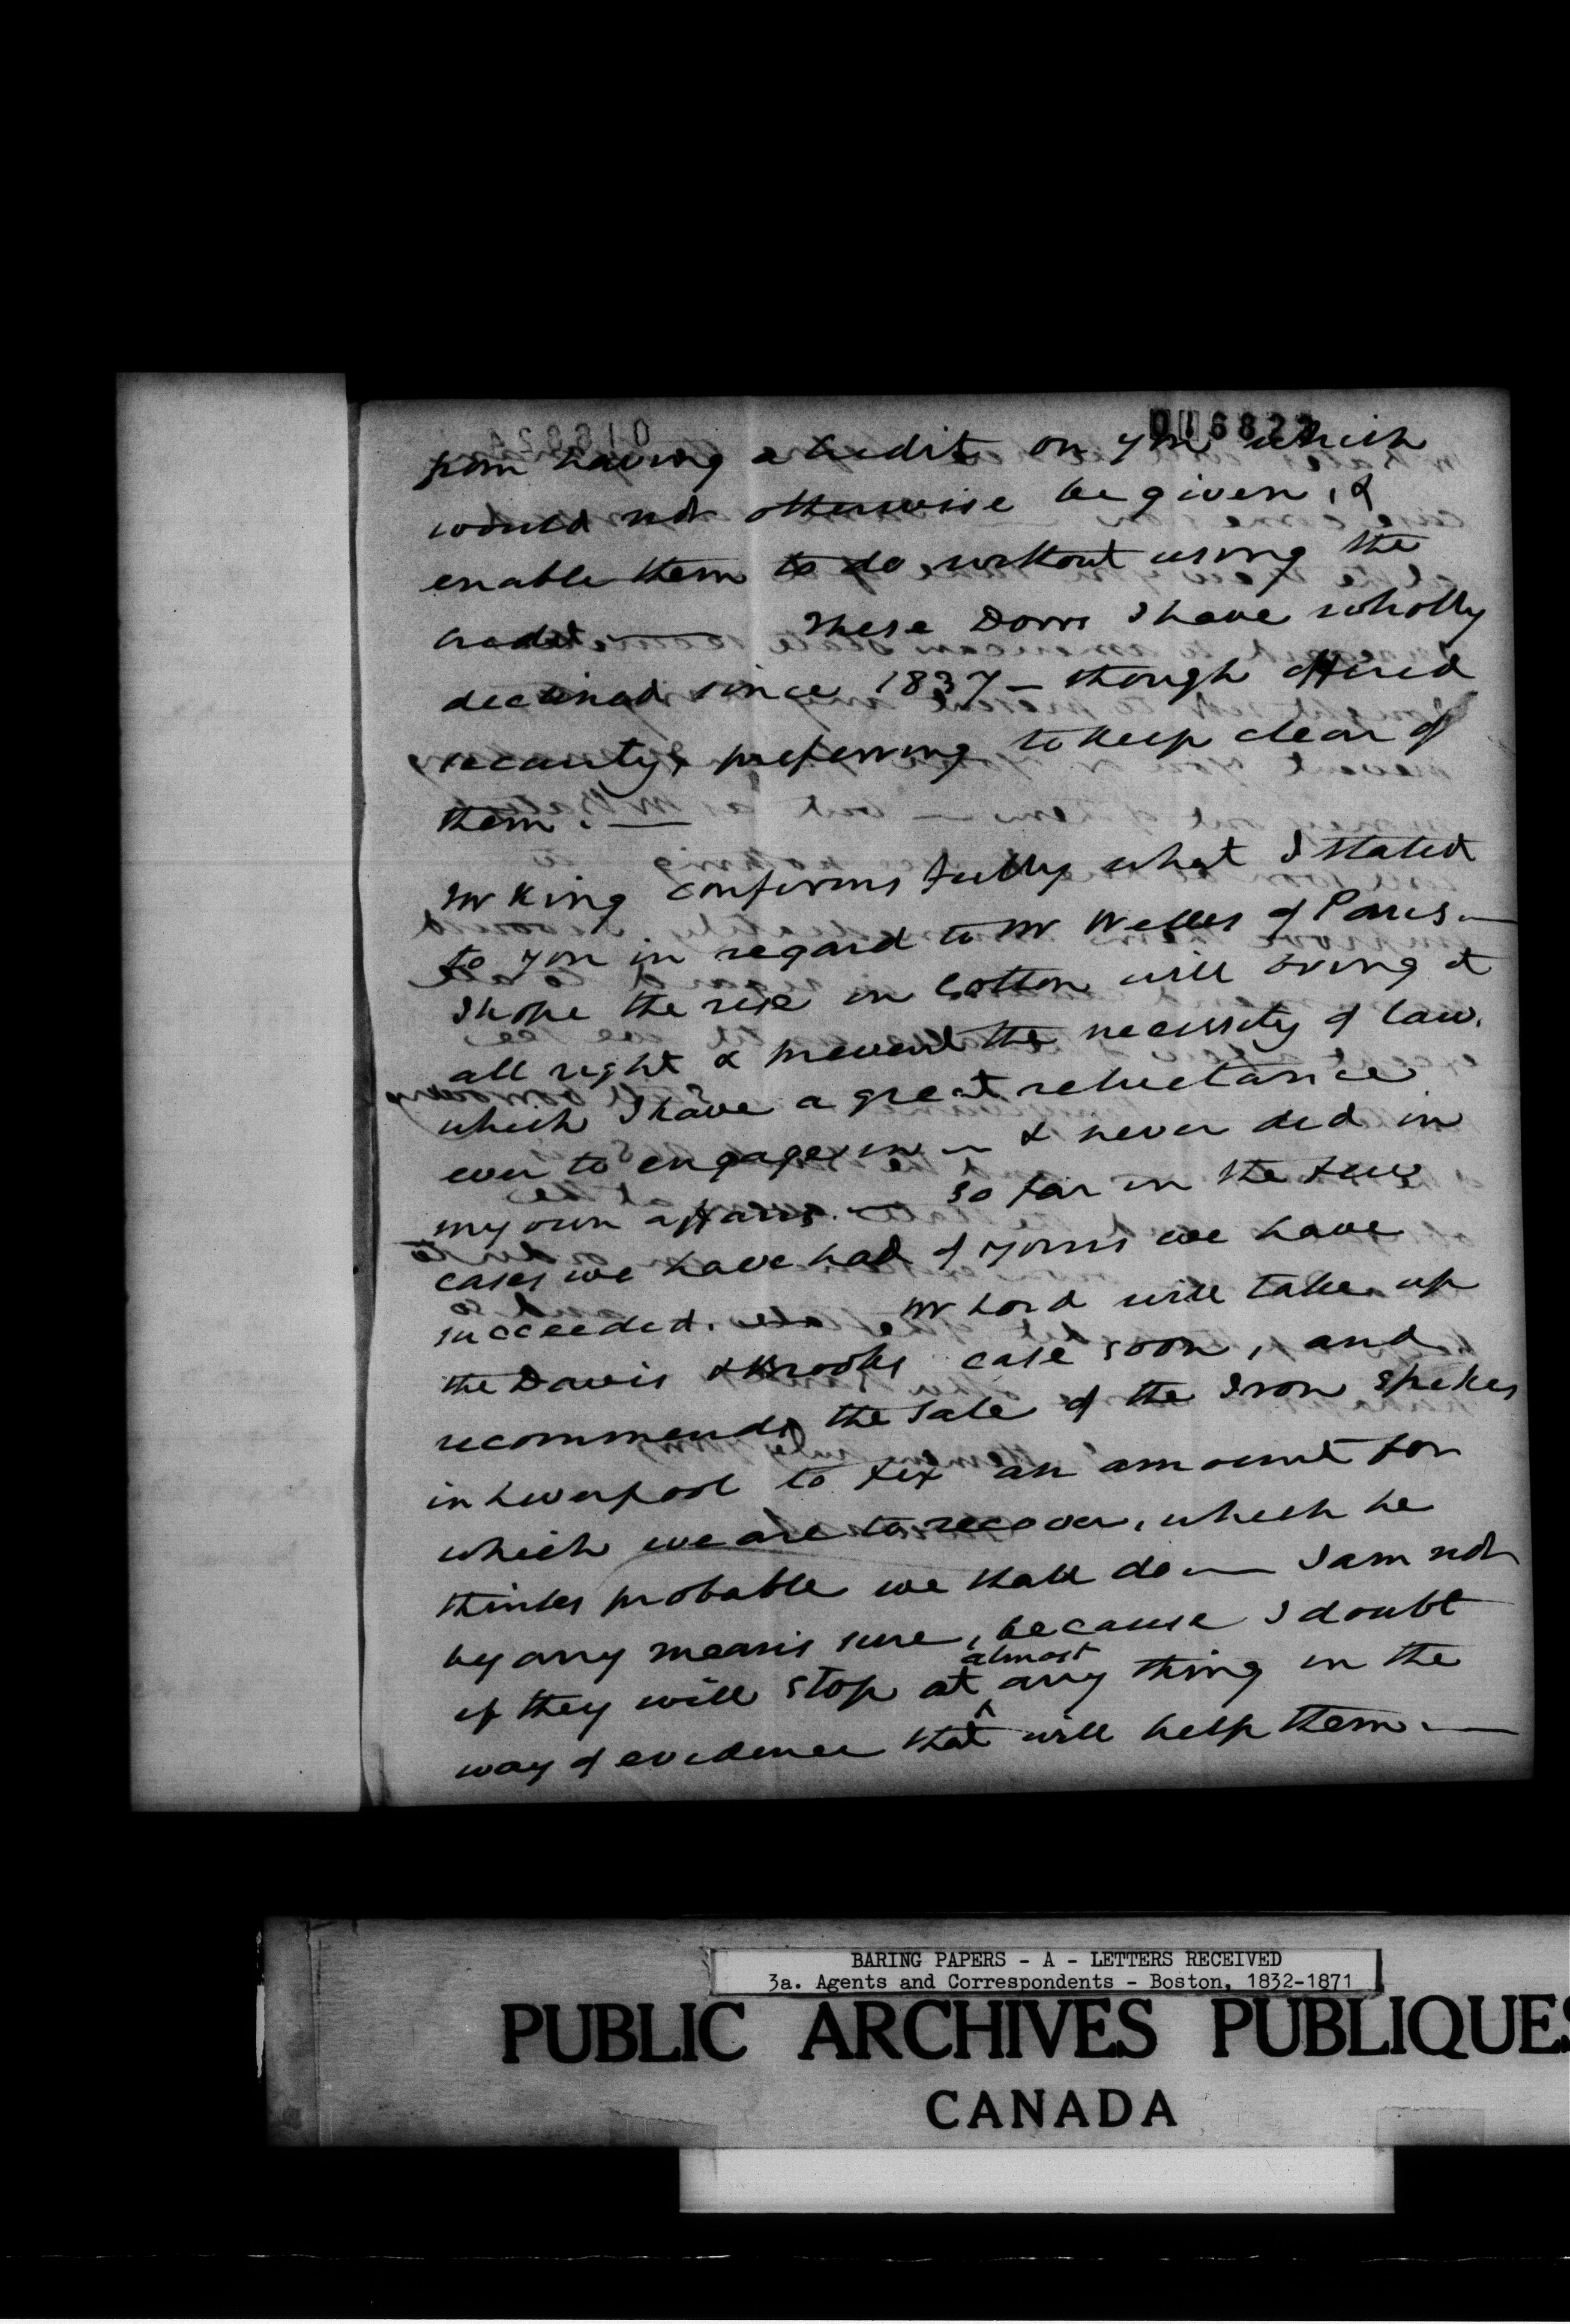 016822
from having a credit on you which
would not otherwise be given, &
enable them to do without using the
credit. — These Dorrs I have wholly
declined since 1837 — though offered
security, preferring to keep clear of
them. —
Mr King confirms fully what I stated
to you in regard to Mr Welles of Paris. —
I hope the rise in Cotton will bring it
all right & prevent the necessity of law,
which I have a great reluctance
ever to engage in — & never did in
my own affairs. — So far in the few
cases we have had of yours we have
succeeded. — Mr Lord will take up
the Davis & Brooks case soon, and
recommends the sale of the Iron Spikes
in Liverpool to fix an amount for
which we are to recover, which he
thinks probable we shall do — I am not
by any means sure, because I doubt
if they will stop at almost any thing in the
way of evidence that will help them. —
BARING PAPERS - A - LETTERS RECEIVED
3a. Agents and Correspondents - Boston, 1832-1871
PUBLIC ARCHIVES PUBLIQUES
CANADA